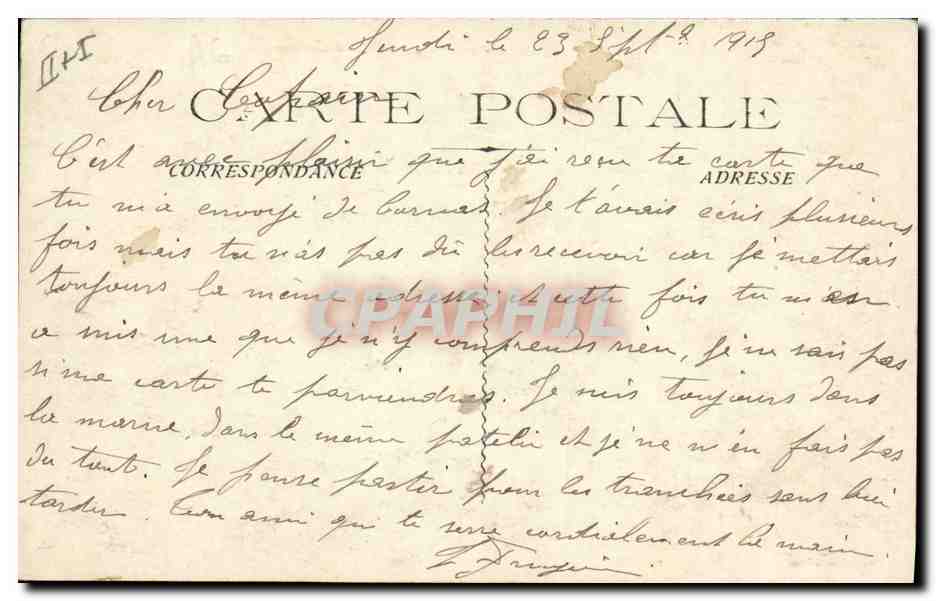 I+II
Jeudi le 23 Sptbre 1915
Cher
CARTE POSTALE
C'est avec plaisir que j'ai reçu ta carte que
CORRESPONDANCE ADRESSE
tu m'a envoyé de Je t'avais écris plusieurs
fois mais tu n'as pas dû les recevoir car je mettais
toujours la même adresse et cette fois tu m'en
a mis une que je n'y comprends rien, je ne sais pas
CPAPHIL
si ma carte te parviendras. Je suis toujours dans
la marne, dans le même patelin et je ne m'en fais pas
du tout. Je pense partir pour les tranchées sans bien
tarder. Ton ami qui te serre cordialement la main.